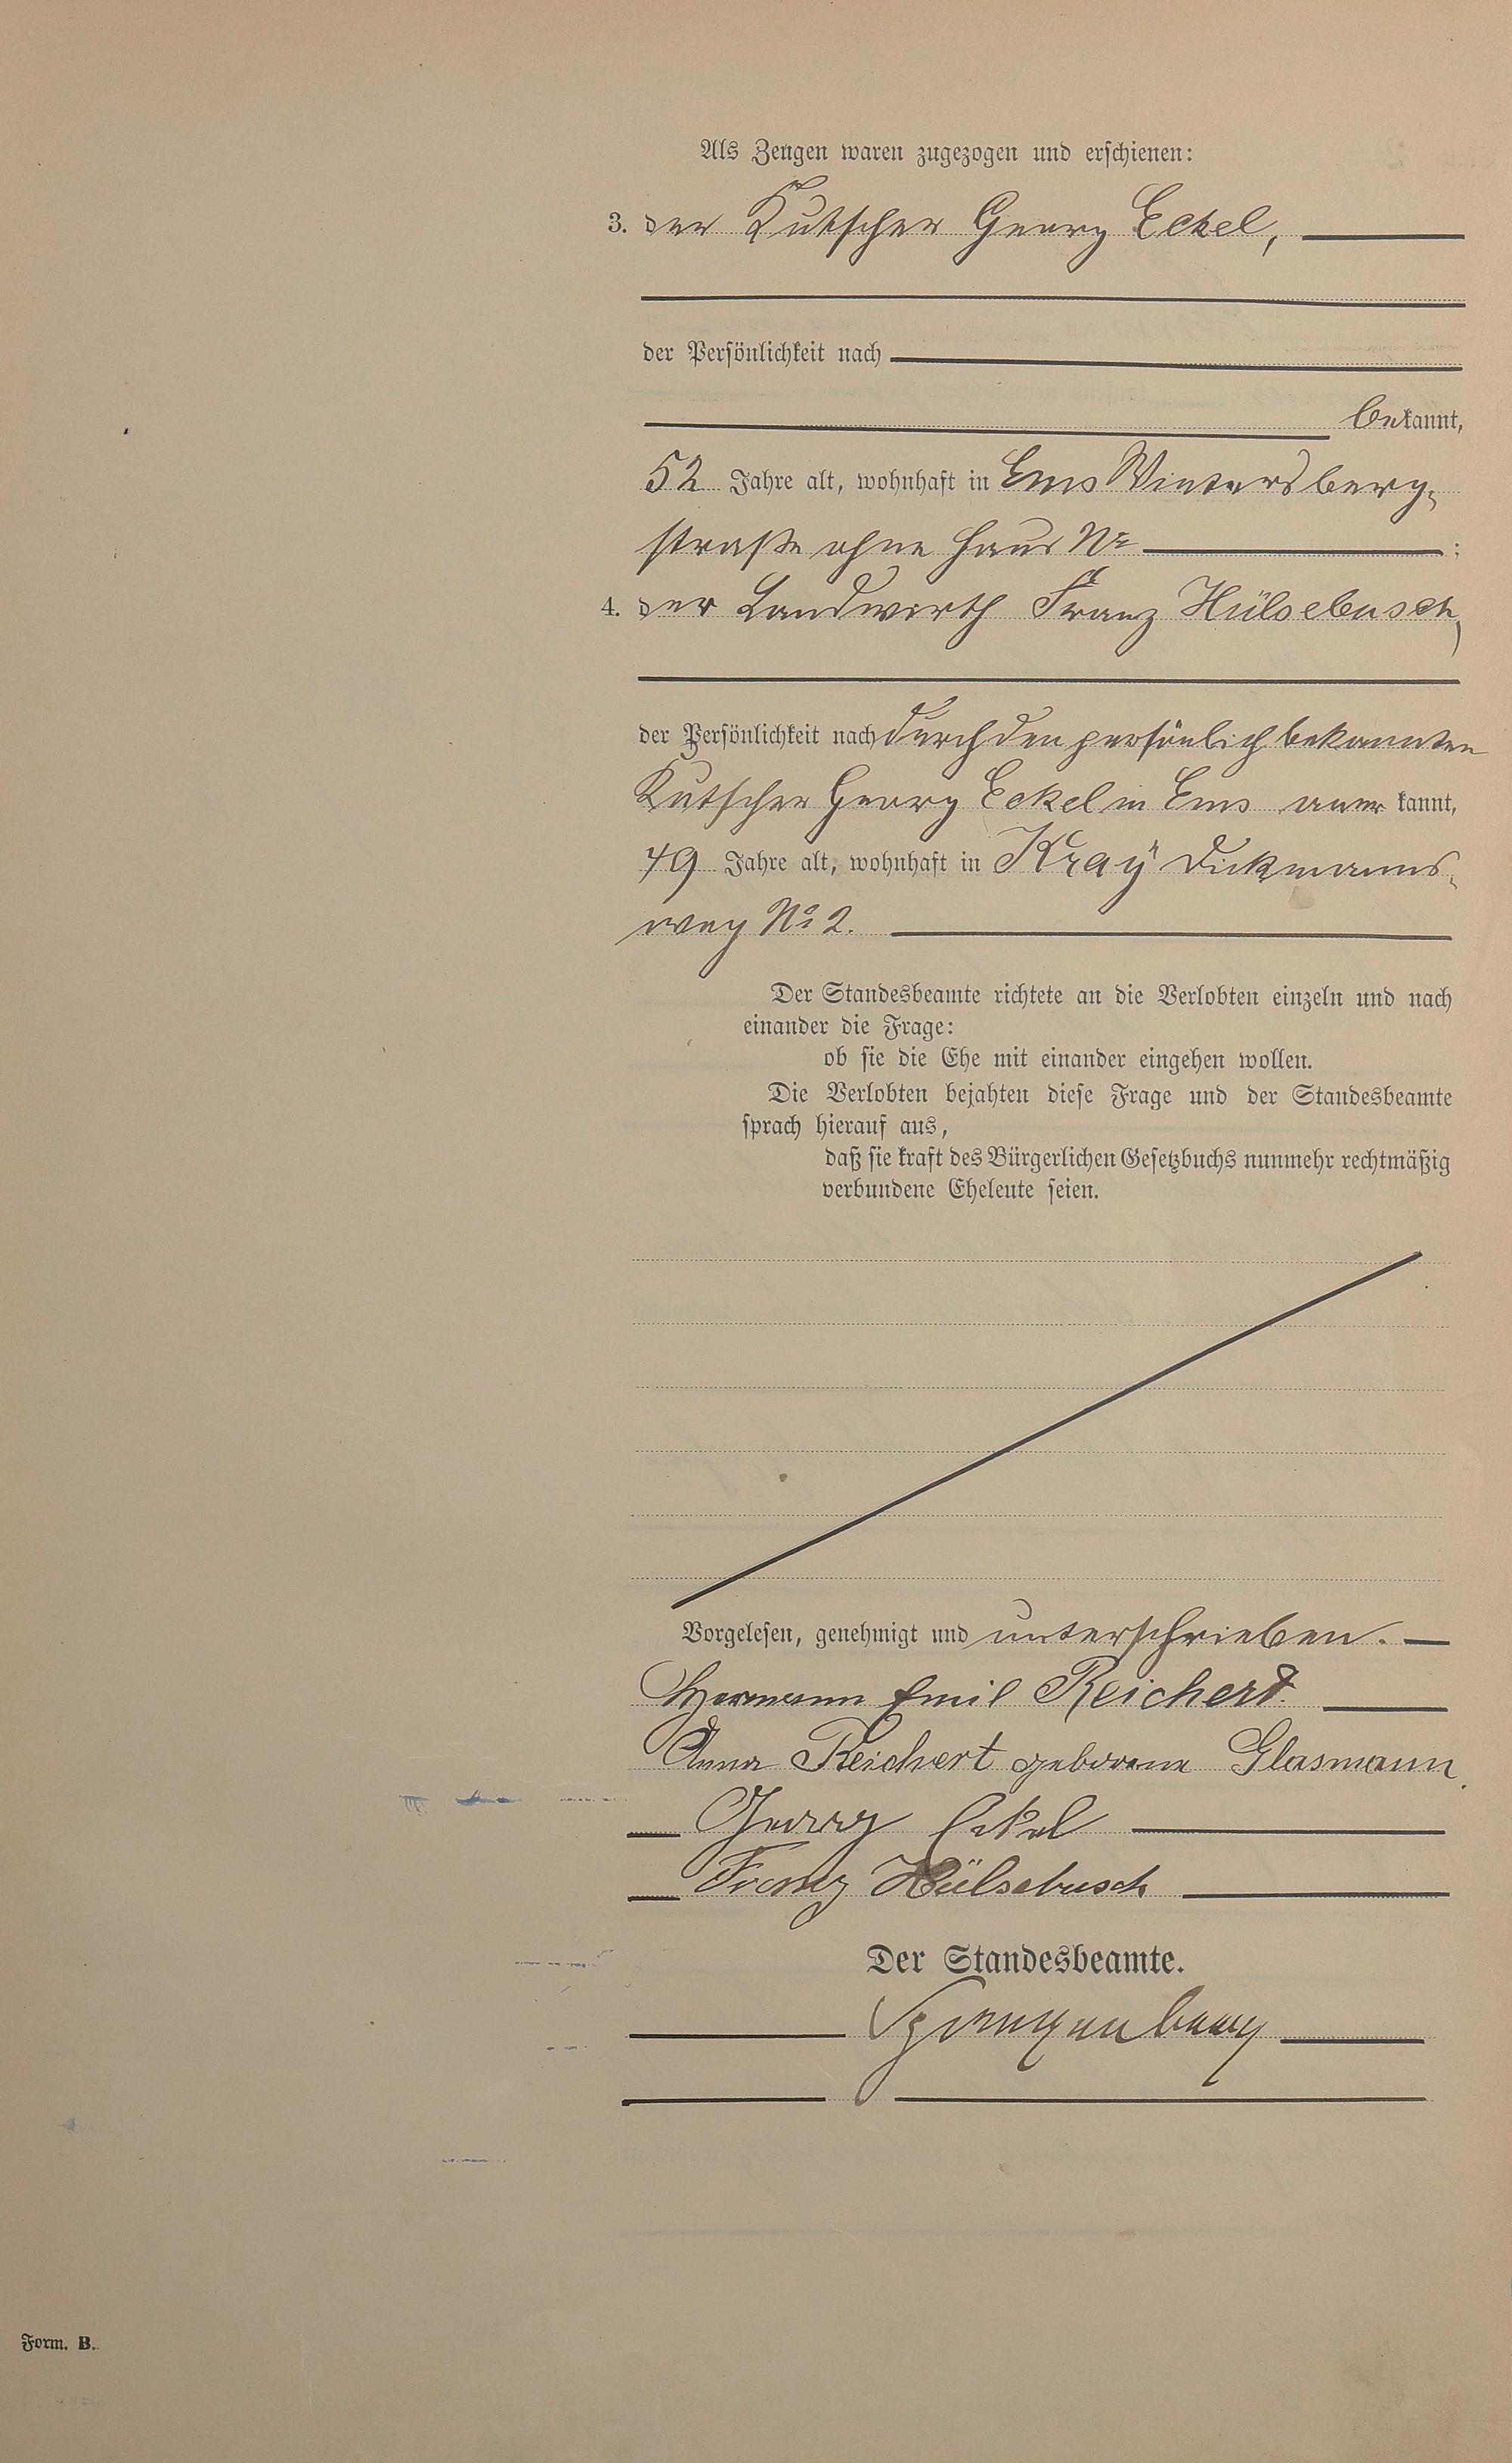 Als Zeugen waren zugezogen und erschienen:
3. der Kutscher Georg Eckel,
der Persönlichkeit nach
bekannt,
52 Jahre alt, wohnhaft in Ems Wintersberg-
straße ohne Haus Nr
4. der Landwirth Franz Hülsebusch,
der Persönlichkeit nach durch den persönlich bekannten
Kutscher Georg Eckel in Ems anerkannt,
49 Jahre alt, wohnhaft in Kray Dickmanns-
weg No 2.
Der Standesbeamte richtete an die Verlobten einzeln und nach
einander die Frage:
ob sie die Ehe mit einander eingehen wollen.
Die Verlobten bejahten diese Frage und der Standesbeamte
sprach hierauf aus,
daß sie kraft des Bürgerlichen Gesetzbuchs nunmehr rechtmäßig
verbundene Eheleute seien.
Vorgelesen, genehmigt und unterschrieben.
Hermann Emil Reichert
Anna Reichert geborene Glasmann.
Georg Eckel
Franz Hülsebusch
Der Standesbeamte.
Form. B.